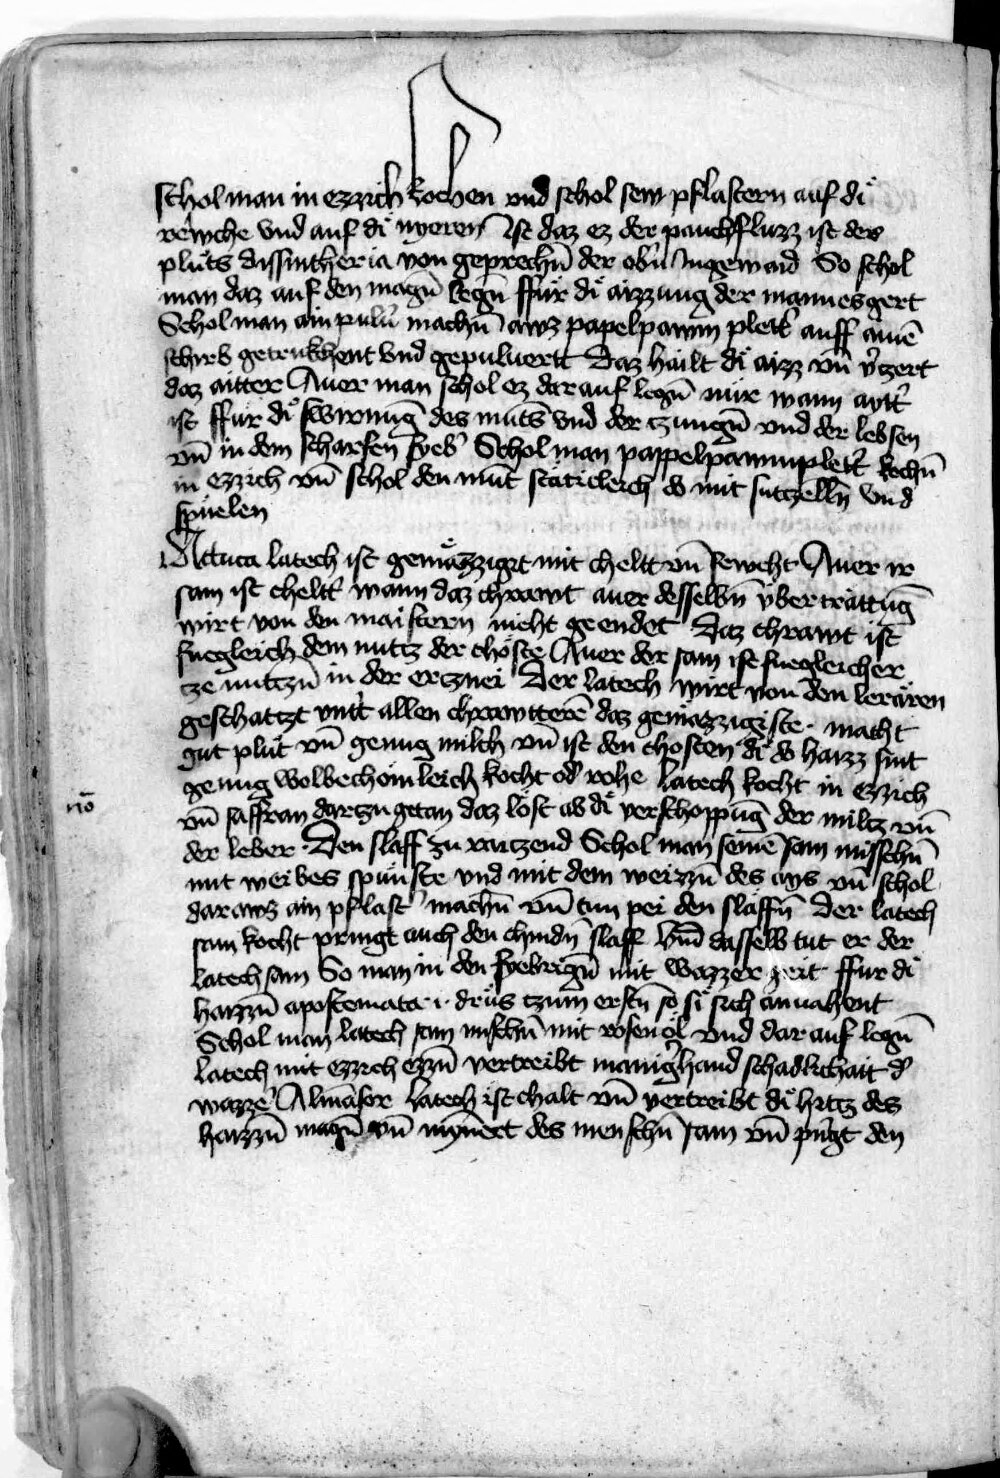 schol man in ezzich kochen vnd schol sew pflastern auf di
rewche vnd auf di nyeren Ist daz ez der pauchfluzz ist der
pluts dissintheria von geprechn̄ der obn̄ Ingewaid So schol
man daz auf den magn̄ legn̄ ffür di aizzung der mannes gert
Schol man ain puluͤ machn̄ awz papelpawm plett͛ auff ainē
schirb getrukchent vnd gepuluert Daz hailt di aizz vn̄ v͛zert
daz aitter Auer man schol ez darauf legn̄ nür wann aytt͛
ist ffür di swirnūg des mūts vnd der tzungn̄ vnd der lebsen
vn̄ in dem scharfen fyeb͛ Schol man pappelpawmplett͛ kochn̄
in ezzich vn̄ schol den mūt stäticleich do mit sutzelln̄ vnd
spüelen
Actuca latech ist gemäzzigt mit cheltt vn̄ fewcht Auer ir
sam ist cheltt͛ wann daz chrawt auer desselbn̄ vberträttūg
wirt von den maistern nicht geendet Daz chrawt ist
fuegleich dem nutz der chöste Auer der sam ist fuegleicher
tze nutzn̄ in der ertznei Der latech wirt von den lerären
geschatzt vnt͛ allen chrawtterē daz gemäzzigiste macht
gut plüt vn̄ genug milch vn̄ ist den chosten di do harzz sint
genug wolbechömleich kocht od͛ rohe latech kocht in ezzich
vn̄ saffran dartzu getan daz löst ab di verschoppūg der miltz vn̄
nō
der leber Den slaff zu raitzend Schol man seinē sam misschn̄
mit weibes spünste vnd mit dem weizzn̄ des ays vn̄ schol
darawz ain pflast͛ machn̄ vn̄ tun pei den släffn̄ Der latech
sam kocht pringt auch den chindn̄ slaff Vnd dasselb tut er der
latech sam So man in den fyebrign̄ mit wazzer geit ffur di
haizzn̄ apostemata .i. drüs tzum erstn̄ so si sich anuahent
Schol man latech sam mischn̄ mit rosen öl vnd dar auf legn̄
latech mit ezzich ezzn̄ vertreibt manigh͛and schadlichait d͛
wazze͛ Almāsor latech ist chalt vn̄ vertreibt di hitz des
haizzn̄ magn̄ vn̄ mynert des menschn̄ sam vn̄ p͛ngt den